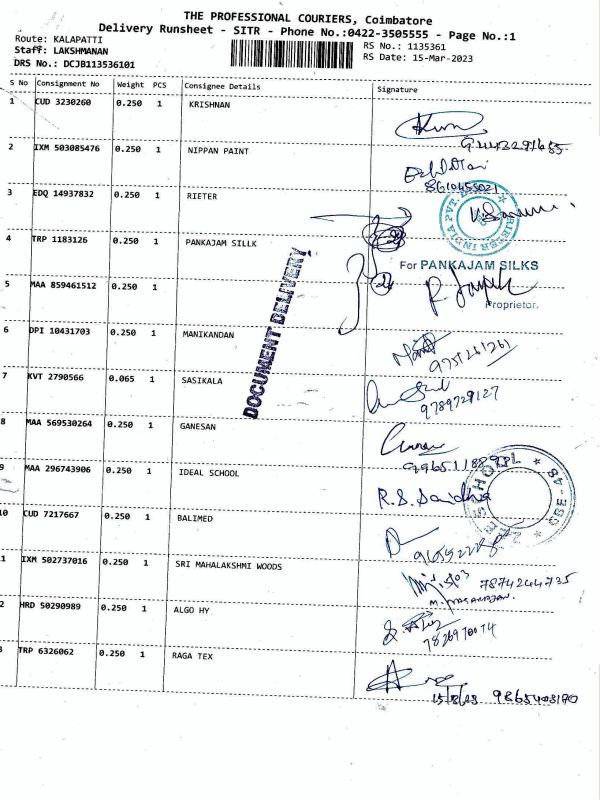 THE PROFESSIONAL COURIERS, Coimbatore
Delivery Runsheet - SITR - Phone No.:0422-3505555 - Page No.:1
Route: KALAPATTI
RS No.: 1135361
Staff: LAKSHMANAN
RS Date: 15-Mar-2023
DRS No.: DCJB113536101
S No Consignment No Weight PCS Consignee Details Signature
1 CUD 3230260 0.250 1 KRISHNAN
2 IXM 503085476 0.250 1 NIPPAN PAINT
8610455021
3 EDQ 14937832 0.250 1 RIETER
RIETER INDIA PVT.
4 TRP 1183126 0.250 1 PANKAJAM SILLK
For PANKAJAM SILKS
5 MAA 859461512 0.250 1
Proprietor.
DOCUMENT DELIVERY
6 DPI 10431703 0.250 1 MANIKANDAN
9751261261
7 KVT 2790566 0.065 1 SASIKALA
9789729127
8 MAA 569530264 0.250 1 GANESAN
9 MAA 296743906 0.250 1 IDEAL SCHOOL
R.S. Saidhia
10 CUD 7217667 0.250 1 BALIMED
1 IXM 502737016 0.250 1 SRI MAHALAKSHMI WOODS
7874244735
2 HRD 50290989 0.250 1 ALGO HY
7826970074
3 TRP 6326062 0.250 1 RAGA TEX
9865403170